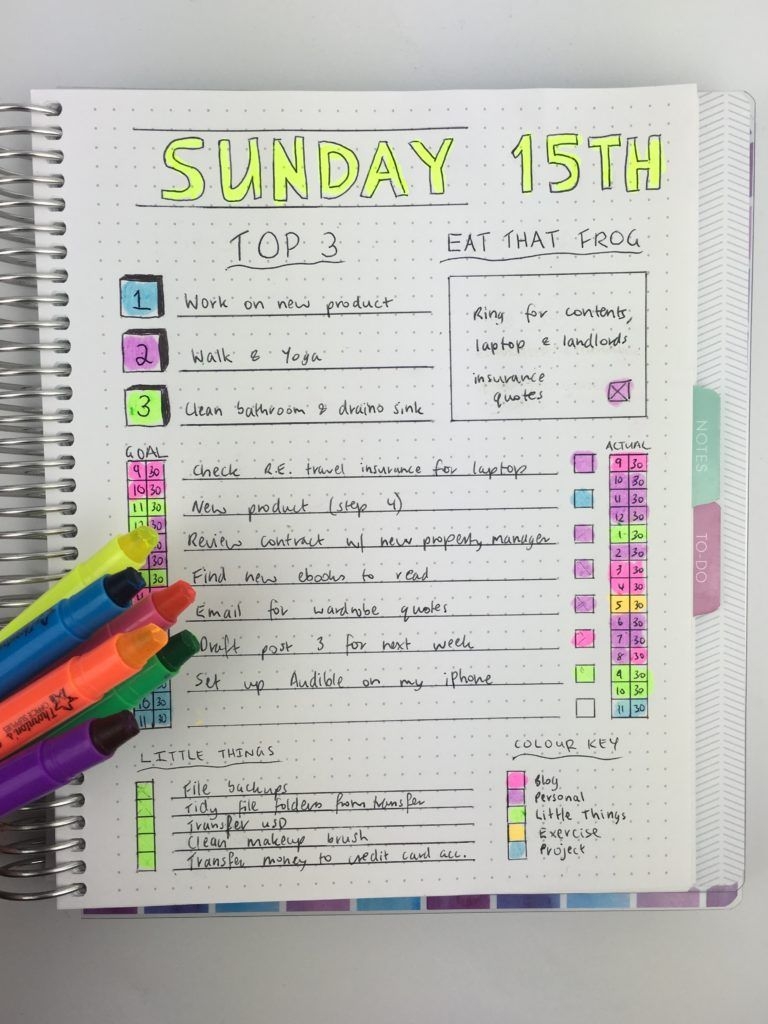 SUNDAY 15TH
TOP 3
EAT THAT FROG
1 Work on new product
2 Walk & Yoga
3 Clean bathroom & draino sink
Ring for contents,
laptop & landlords
insurance
quotes
GOAL
9 30
10 30
11 30
30
30
30
30
10 30
11 30
Check R.E. travel insurance for laptop
New product (step 4)
Review contract w/ new property manager
Find new ebooks to read
Email for wardrobe quotes
Draft post 3 for next week
Set up Audible on my iphone
ACTUAL
9 30
10 30
11 30
12 30
1 30
2 30
3 30
4 30
5 30
6 30
7 30
8 30
9 30
10 30
11 30
NOTES
TO-DO
Thornton's
OFFICE SUPPLIES
LITTLE THINGS
File backups
Tidy file folders from transfer
Transfer USD
Clean makeup brush
Transfer money to credit card acc.
COLOUR KEY
Blog
Personal
Little Things
Exercise
Project